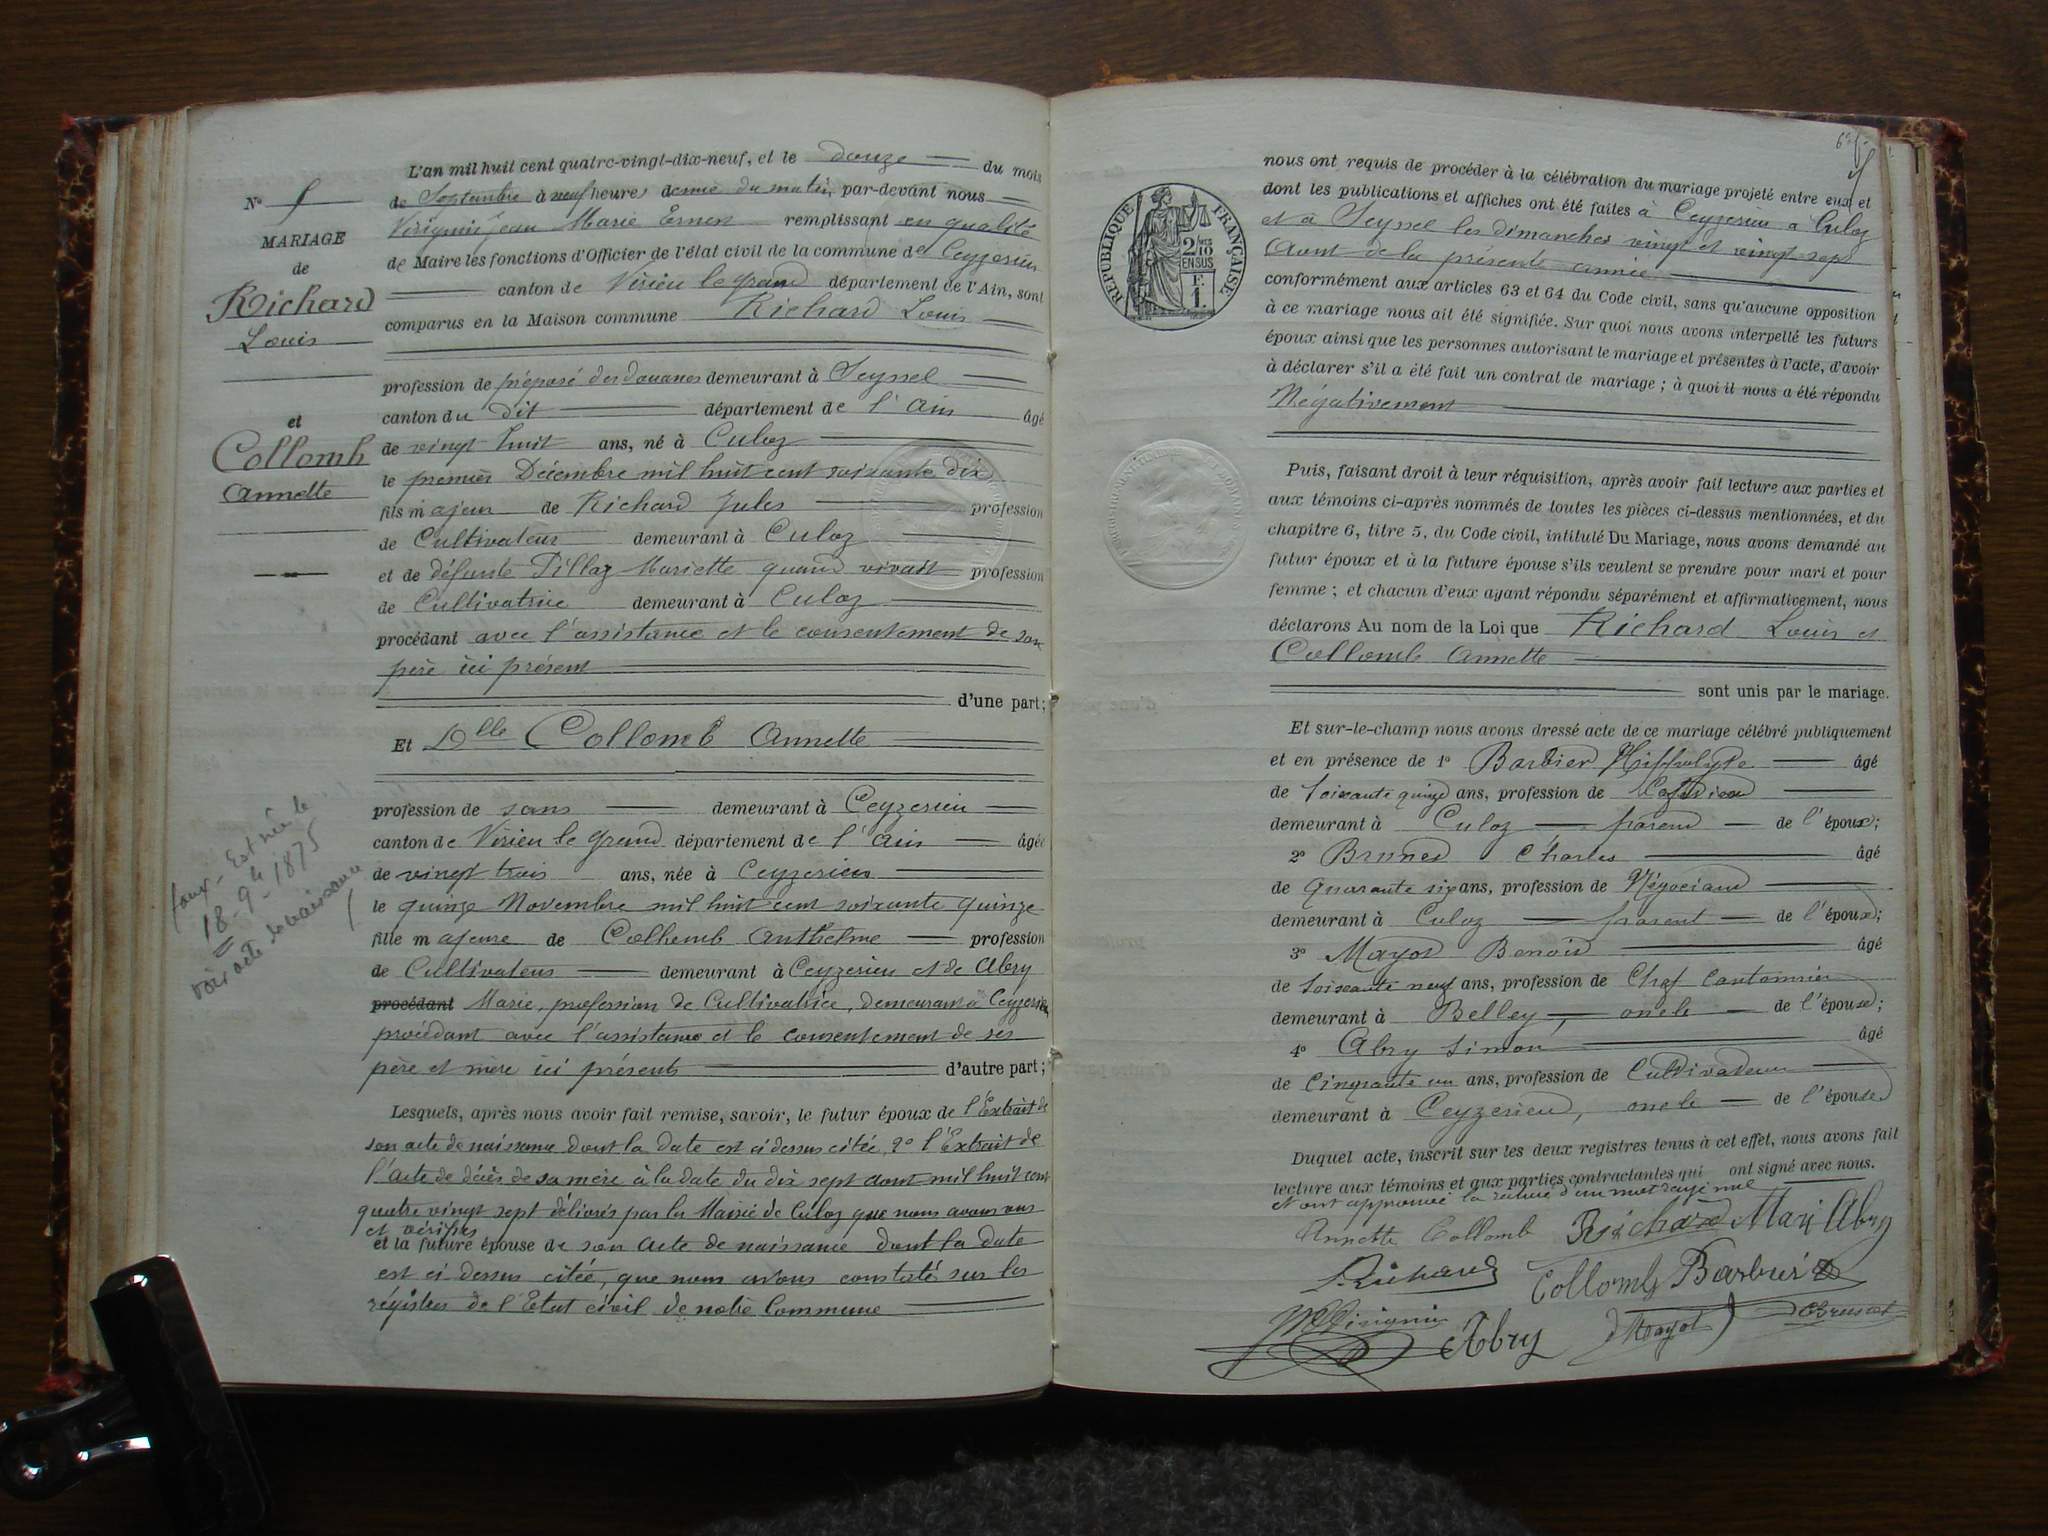 L'an mil huit cent quatre-vingt-dix-neuf, et le douze du mois
de Septembre à neuf heures demie du matin, par-devant nous
Jean Marie Ernest remplissant en qualité
de Maire les fonctions d'Officier de l'état civil de la commune de Ceyzerieu
canton de Virieu le grand département de l'Ain, sont
comparus en la Maison commune Richard Louis
profession de préposé des douanes demeurant à Seyssel
canton du dit département de l'Ain âgé
de vingt huit ans, né à Culoz
le premier Décembre mil huit cent soixante dix
fils majeur de Richard Jules profession
de Cultivateur demeurant à Culoz
et de défunte Pillaz Mariette quand vivait profession
de Cultivatrice demeurant à Culoz
procédant avec l'assistance et le consentement de son
père ici présent
d'une part;
Et Dlle Collomb Annette
profession de sans demeurant à Ceyzerieu
canton de Virieu le Grand département de l'Ain âgée
de vingt trois ans, née à Ceyzerieu
le quinze Novembre mil huit cent soixante quinze
fille majeure de Collomb Anthelme profession
de Cultivateur demeurant à Ceyzerieu et de Abry
procédant Marie, profession de Cultivatrice, demeurant à Ceyzerieu
procédant avec l'assistance et le consentement de ses
père et mère ici présents d'autre part;
Lesquels, après nous avoir fait remise, savoir, le futur époux de l'Extrait de
son acte de naissance dont la date est ci dessus citée, 2º l'Extrait de
l'acte de décès de sa mère à la date du dix sept aout mil huit cent
quatre vingt sept délivrés par la Mairie de Culoz que nous avons vus
et vérifiés
et la future épouse de son acte de naissance dont la date
est ci dessus citée, que nous avons constaté sur les
régistres de l'Etat civil de notre Commune
Nº
MARIAGE
de
Richard
Louis
et
Collomb
Annette
faux - Est née le
18-9-1875
voir acte de naissance
RÉPUBLIQUE FRANÇAISE
2 10
EN SUS
F.
1.
nous ont requis de procéder à la célébration du mariage projeté entre eux et
dont les publications et affiches ont été faites à Ceyzerieu à Culoz
et à Seyssel les dimanches vingt et vingt sept
Aout de la présente année
conformément aux articles 63 et 64 du Code civil, sans qu'aucune opposition
à ce mariage nous ait été signifiée. Sur quoi nous avons interpellé les futurs
époux ainsi que les personnes autorisant le mariage et présentes à l'acte, d'avoir
à déclarer s'il a été fait un contrat de mariage; à quoi il nous a été répondu
Négativement
Puis, faisant droit à leur réquisition, après avoir fait lecture aux parties et
aux témoins ci-après nommés de toutes les pièces ci-dessus mentionnées, et du
chapitre 6, titre 5, du Code civil, intitulé Du Mariage, nous avons demandé au
futur époux et à la future épouse s'ils veulent se prendre pour mari et pour
femme; et chacun d'eux ayant répondu séparément et affirmativement, nous
déclarons Au nom de la Loi que Richard Louis et
Collomb Annette
sont unis par le mariage.
Et sur-le-champ nous avons dressé acte de ce mariage célébré publiquement
et en présence de 1º Barbier Hippolyte âgé
de soixante quinze ans, profession de
demeurant à Culoz parent de l'époux;
2º Brunet Charles âgé
de Quarante six ans, profession de Négociant
demeurant à Culoz parent de l'époux;
3º Mayot Benoit âgé
de soixante neuf ans, profession de Chef Cantonnier
demeurant à Belley, oncle de l'épouse;
4º Abry Simon âgé
de Cinquante un ans, profession de Cultivateur
demeurant à Ceyzerieu, oncle de l'épouse
Duquel acte, inscrit sur les deux registres tenus à cet effet, nous avons fait
lecture aux témoins et aux parties contractantes qui ont signé avec nous.
et ont approuvé la rature d'un mot rayé nul
Annette Collomb Richard Mari Abry
L. Richard Collomb Barbier
Abry Mayot Ch Brunet